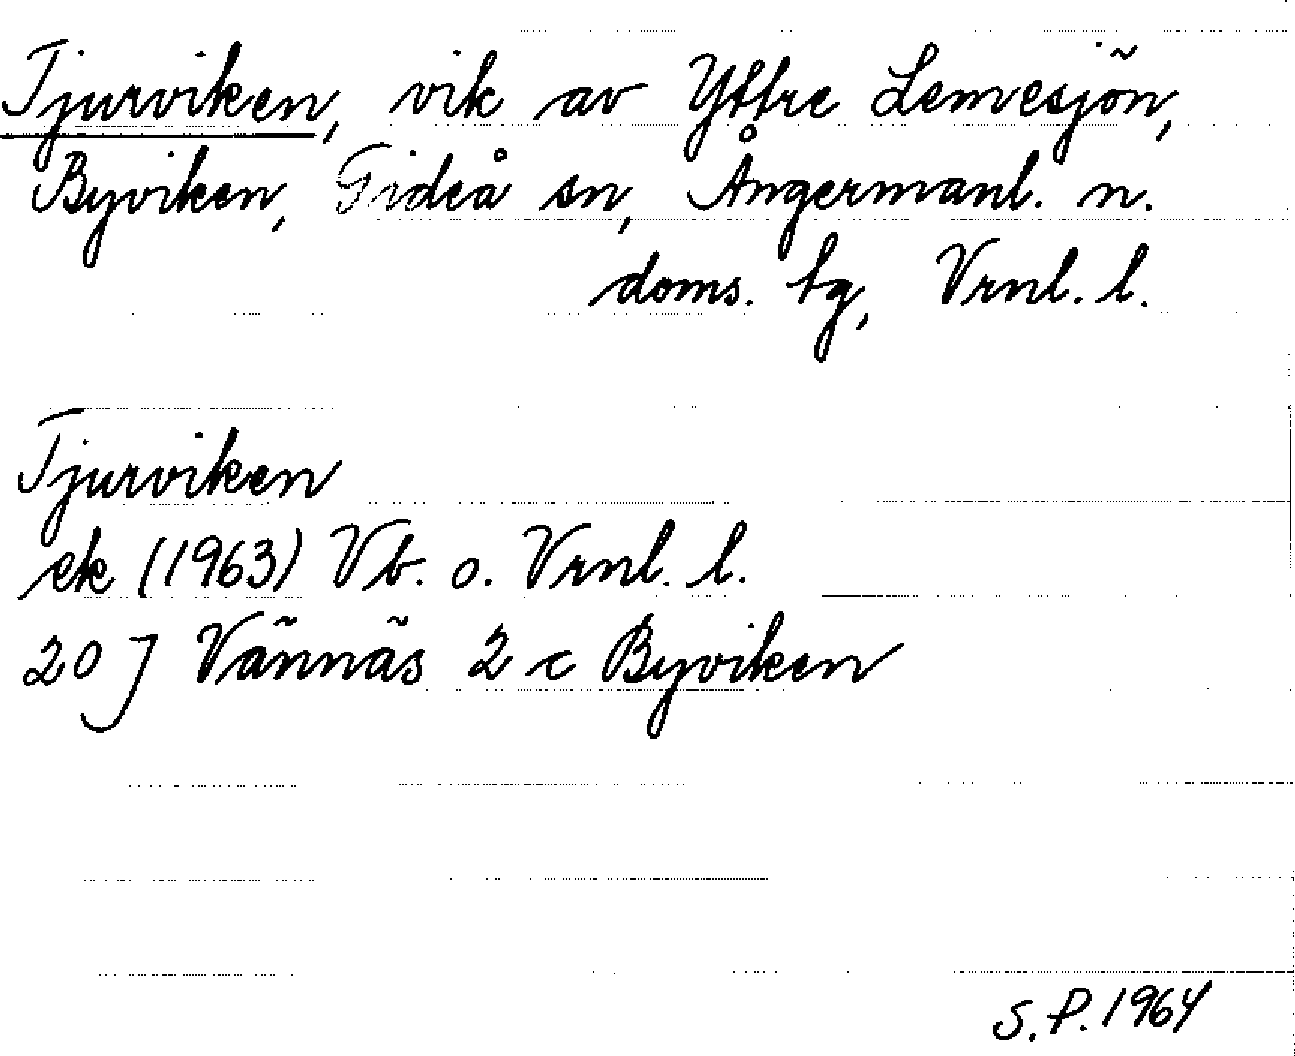 Tjurviken, vik av Yttre Lemesjön,
Byviken, Gideå sn, Ångermanl. n.
doms. tg, Vrnl. l.
Tjurviken
ek (1963) Vb. o. Vrnl. l.
20 J Vännäs 2 c Byviken
S. P. 1964